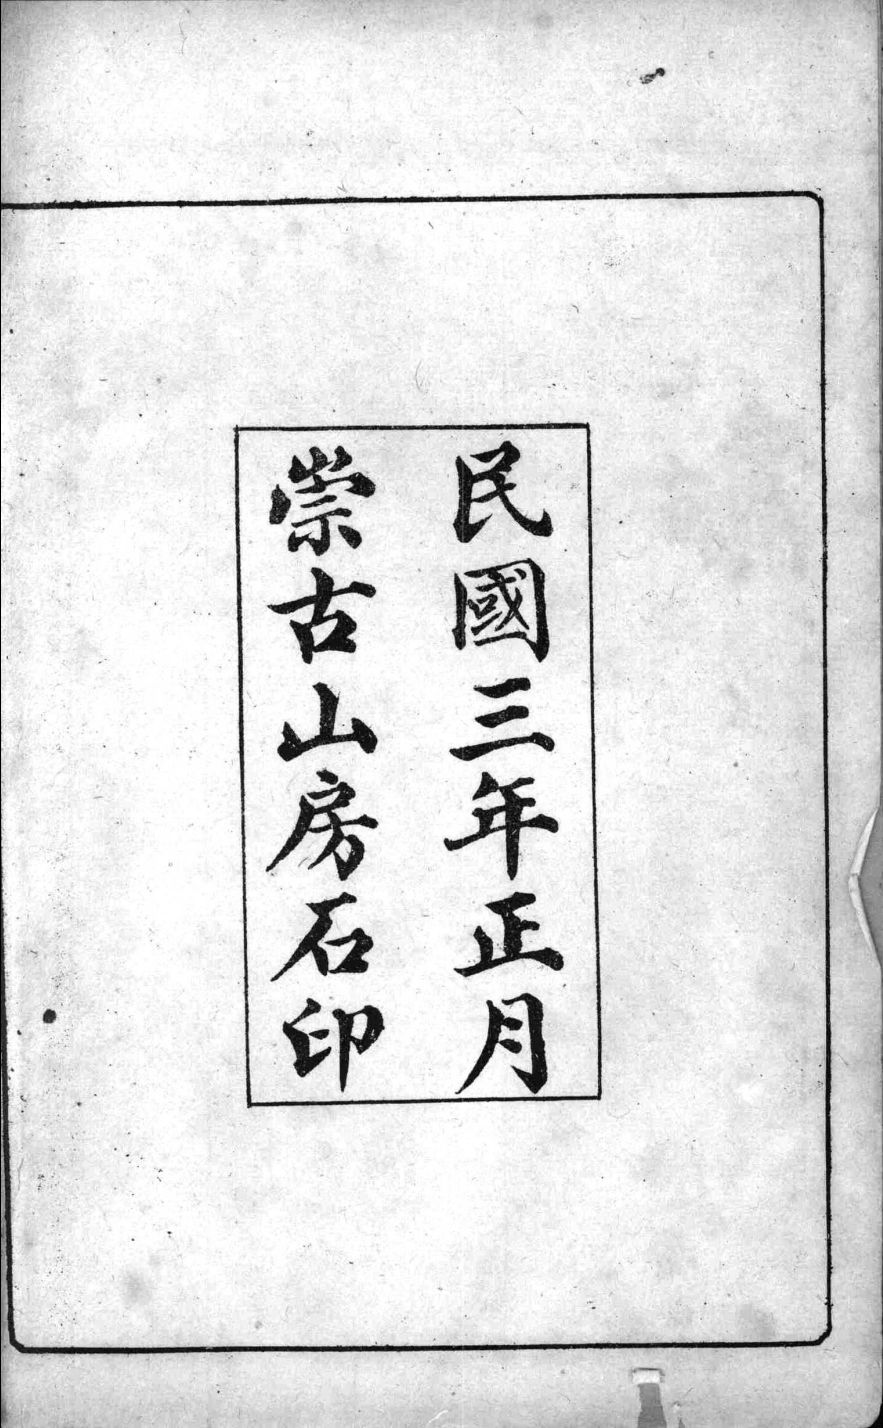 民國三年正月
崇古山房石印